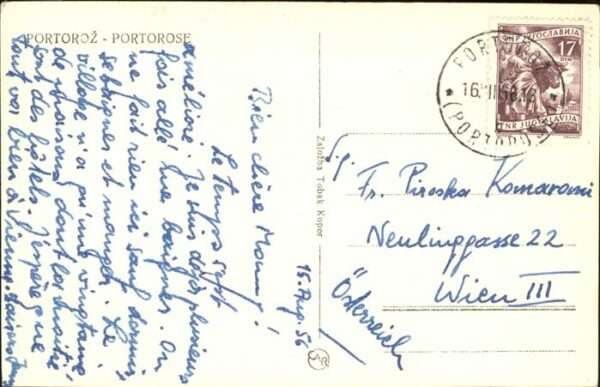 PORTOROŽ - PORTOROSE
15. Aug. 56
Bien chère Mamy!
Le temps s'est
amélioré. Je suis déjà plusieurs
fois allé me baigner. On
ne fait rien ici sauf dormir,
se baigner et manger. Le
village n'a qu'une vingtaine
de maisons dont la moitié
sont des hôtels. J'espère que
tout va bien à Vienne.
Založba Tobak Koper
Fr. Piroska Komaromi
Neulinggasse 22
Wien III
Österreich
JUGOSLAVIJA
17
DIN
FNR JUGOSLAVIJA
PORTOROŽ
(PORTOROSE)